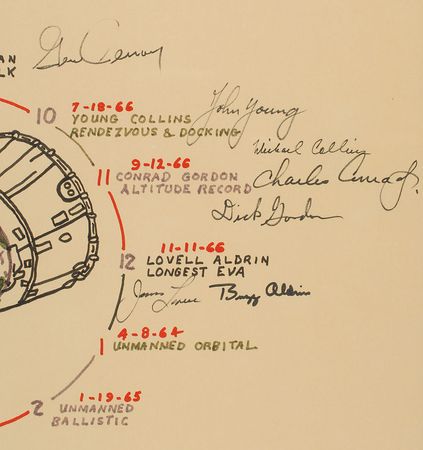 AN
LK
Gene Cernan
10
7-18-66
YOUNG COLLINS
RENDEZVOUS & DOCKING
John Young
Michael Collins
11
9-12-66
CONRAD GORDON
ALTITUDE RECORD
Charles Conrad Jr.
Dick Gordon
12
11-11-66
LOVELL ALDRIN
LONGEST EVA
James Lovell Buzz Aldrin
1
4-8-64
UNMANNED ORBITAL
2
1-19-65
UNMANNED
BALLISTIC